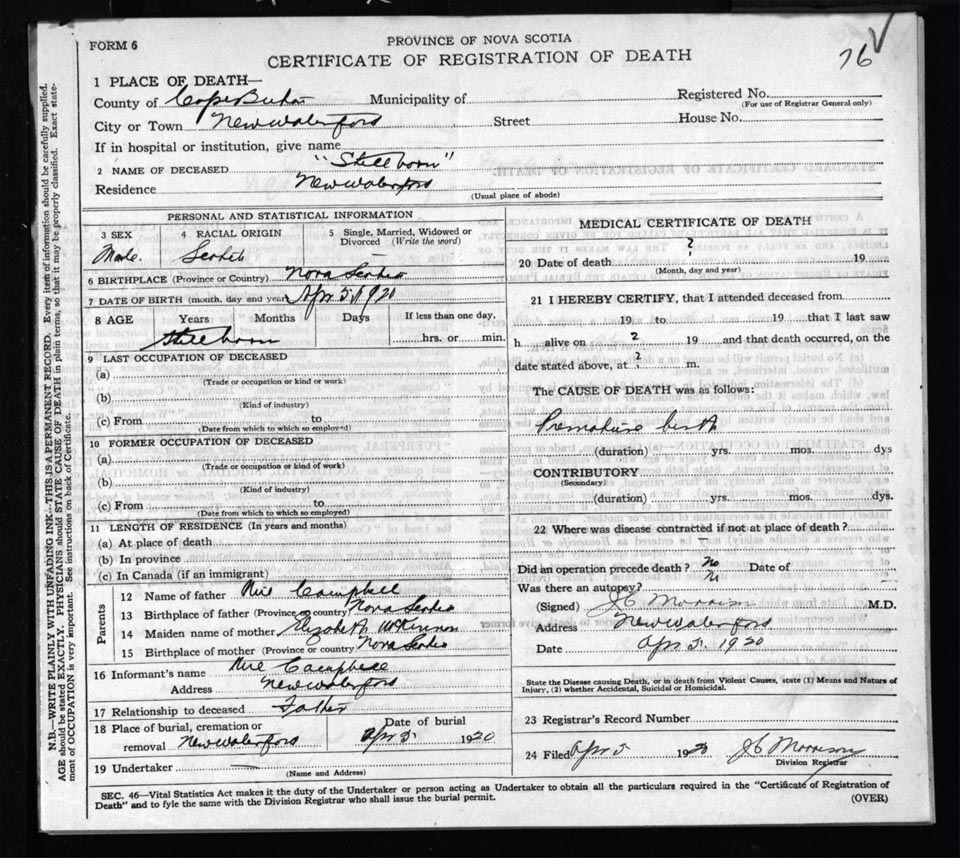 76 V
FORM 6
PROVINCE OF NOVA SCOTIA
CERTIFICATE OF REGISTRATION OF DEATH
1 PLACE OF DEATH—
County of Cape Breton Municipality of Registered No.
(For use of Registrar General only)
City or Town New Waterford Street House No.
If in hospital or institution, give name
2 NAME OF DECEASED "Stillborn"
Residence New Waterford
(Usual place of abode)
PERSONAL AND STATISTICAL INFORMATION
3 SEX 4 RACIAL ORIGIN 5 Single, Married, Widowed or
Divorced (Write the word)
Male. Scotch —
6 BIRTHPLACE (Province or Country) Nova Scotia
7 DATE OF BIRTH (month, day and year) Apr 5, 1920
8 AGE Years Months Days If less than one day,
Stillborn hrs. or min.
9 LAST OCCUPATION OF DECEASED
(a)
(Trade or occupation or kind or work)
(b)
(Kind of industry)
(c) From to
(Date from which to which so employed)
10 FORMER OCCUPATION OF DECEASED
(a)
(Trade or occupation or kind of work)
(b)
(Kind of industry)
(c) From to
(Date from which to which so employed)
11 LENGTH OF RESIDENCE (In years and months)
(a) At place of death
(b) In province
(c) In Canada (if an immigrant)
Parents
12 Name of father Campbell
13 Birthplace of father (Province or country) Nova Scotia
14 Maiden name of mother Elizabeth McKinnon
15 Birthplace of mother (Province or country) Nova Scotia
16 Informant's name Campbell
Address New Waterford
17 Relationship to deceased Father
18 Place of burial, cremation or
removal New Waterford
Date of burial
Apr 5 1920
19 Undertaker —
(Name and Address)
MEDICAL CERTIFICATE OF DEATH
20 Date of death ? 19
(Month, day and year)
21 I HEREBY CERTIFY, that I attended deceased from
19 to 19 that I last saw
h alive on ? 19 and that death occurred, on the
date stated above, at ? m.
The CAUSE OF DEATH was as follows:
Premature birth
(duration) yrs. mos. dys
CONTRIBUTORY
(Secondary)
(duration) yrs. mos. dys.
22 Where was disease contracted if not at place of death?
Did an operation precede death? No Date of
Was there an autopsy? N
(Signed) J C Morrison M.D.
Address New Waterford
Date Apr 5. 1920
State the Disease causing Death, or in death from Violent Causes, state (1) Means and Nature of
Injury, (2) whether Accidental, Suicidal or Homicidal.
23 Registrar's Record Number
24 Filed Apr 5 1920 J C Morrison
Division Registrar
SEC. 46—Vital Statistics Act makes it the duty of the Undertaker or person acting as Undertaker to obtain all the particulars required in the "Certificate of Registration of
Death" and to fyle the same with the Division Registrar who shall issue the burial permit.
(OVER)
N.B.—WRITE PLAINLY WITH UNFADING INK—THIS IS A PERMANENT RECORD. Every item of information should be carefully supplied.
AGE should be stated EXACTLY. PHYSICIANS should STATE CAUSE OF DEATH in plain terms, so that it may be properly classified. Exact state-
ment of OCCUPATION is very important. See instructions on back of Certificate.